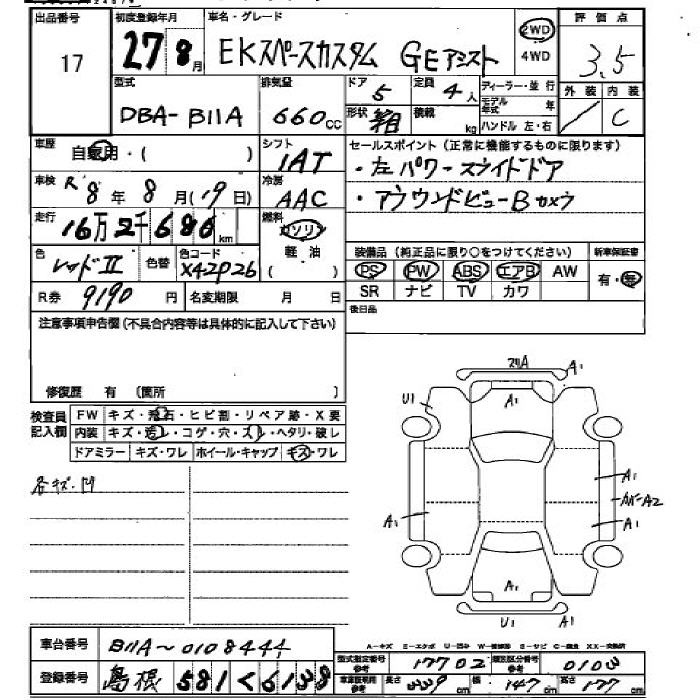 出品番号 初度登録年月 車名・グレード 2WD 4WD 評価点
17 27 8月 EKスペースカスタム GEアシスト 3.5
型式 排気量 ドア 5 定員 4人 ディーラー・並行 外装 内装
DBA-B11A 660cc 形状 箱 積載 kg モデル年式 年 ハンドル 左・右 C
車歴 自家用・( ) シフト 1AT セールスポイント(正常に機能するものに限ります)
車検 R8年8月(19日) 冷房 AAC ・左パワースライドドア
走行 16万2千686km 燃料 ガソリン 軽油 ( ) ・アラウンドビューBカメラ
色 レッドII 色替 色コード X42P26 装備品(純正品に限り○をつけてください) 新車保証書
PS PW ABS エアB AW 有・無
R券 9190円 名変期限 月 日 SR ナビ TV カワ
注意事項申告欄(不具合内容等は具体的に記入して下さい) 後日品
修復歴 有 [箇所 ]
検査員記入欄 FW キズ・飛石・ヒビ割・リペア跡・X要
内装 キズ・汚レ・コゲ・穴・スレ・ヘタリ・破レ
ドアミラー キズ・ワレ ホイール・キャップ キズ・ワレ
各キズ・凹
A1
U1 A1
A1
カバーA2
A1 A1
A1
U1 A1
車台番号 B11A~0108444
型式指定番号 参考 17702 類別区分番号 参考 0103
登録番号 島根 581 く 6138 車庫証明用参考 長さ 339cm 幅 147cm 高さ 177cm